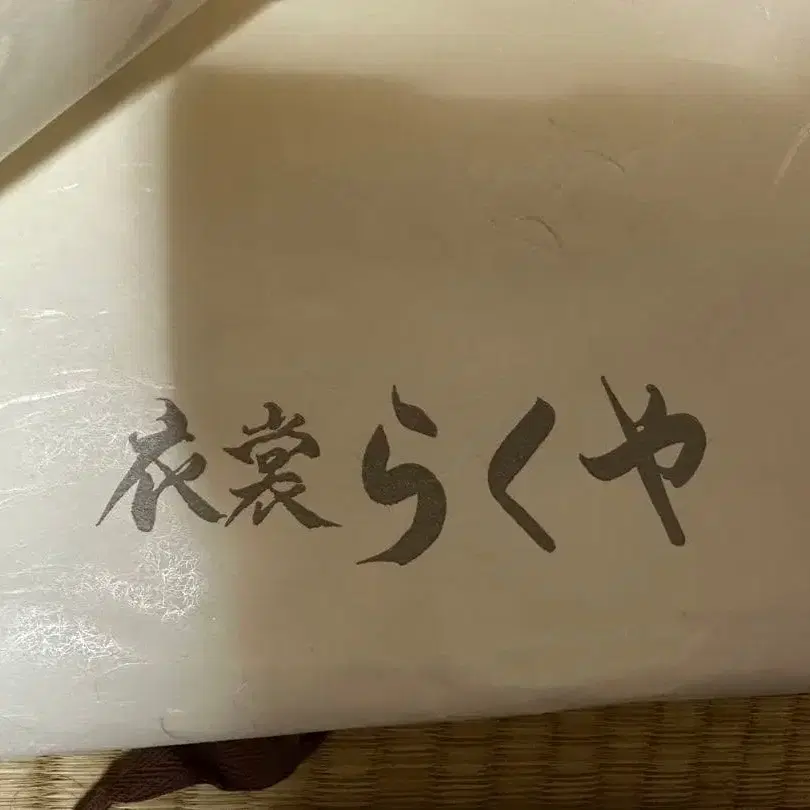 衣裳らくや